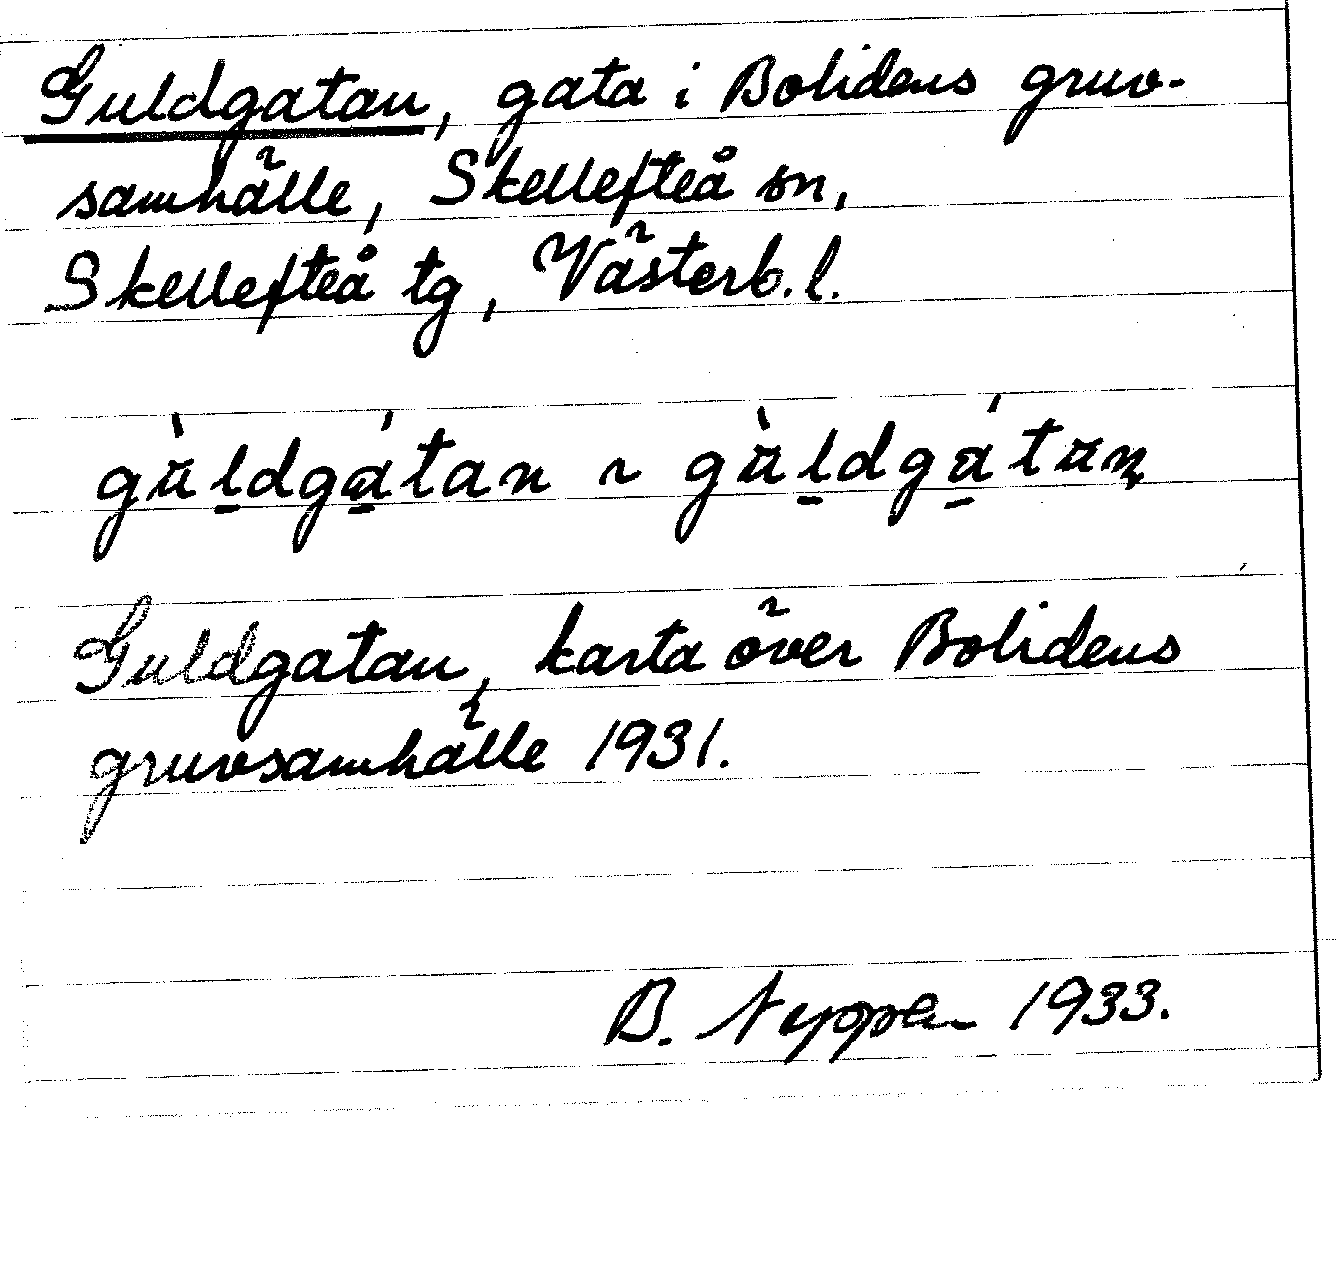 Guldgatan, gata i Bolidens gruv-
samhälle, Skellefteå sn,
Skellefteå tg, Västerb. l.
Guldgatan, karta över Bolidens
gruvsamhälle 1931.
B. 1933.